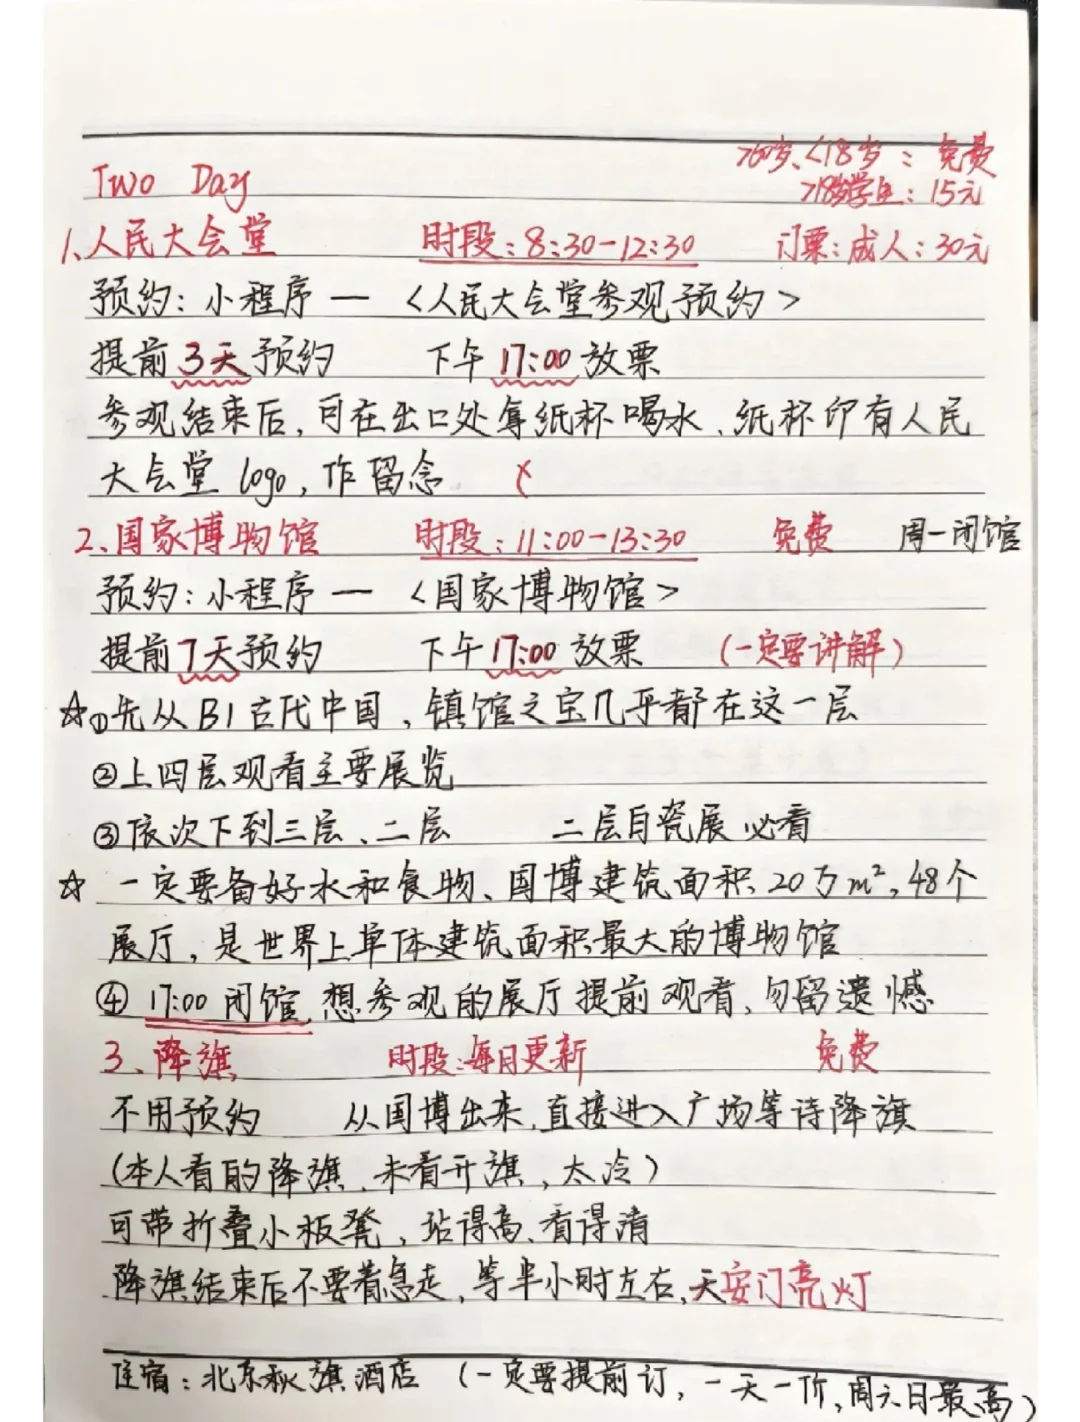 >60岁、<18岁：免费
Two Day
>18岁学生：15元
1、人民大会堂 时段：8:30-12:30 门票：成人：30元
预约：小程序一 <人民大会堂参观预约>
提前3天预约 下午17:00放票
参观结束后，可在出口处拿纸杯喝水、纸杯印有人民
大会堂logo，作留念
2、国家博物馆 时段：11:00-13:30 免费 周一闭馆
预约：小程序一 <国家博物馆>
提前7天预约 下午17:00放票 （一定要讲解）
☆①先从B1古代中国，镇馆之宝几乎都在这一层
②上四层观看主要展览
③依次下到三层、二层 二层自瓷展必看
☆ 一定要备好水和食物、国博建筑面积20万m²，48个
展厅，是世界上单体建筑面积最大的博物馆
④ 17:00闭馆，想参观的展厅提前观看，勿留遗憾
3、降旗 时段：每日更新 免费
不用预约 从国博出来，直接进入广场等待降旗
（本人看的降旗、未看升旗，太冷）
可带折叠小板凳，站得高、看得清
降旗结束后不要着急走，等半小时左右，天安门亮灯
住宿：北京秋旗酒店 （一定要提前订，一天一价，周六日最高）